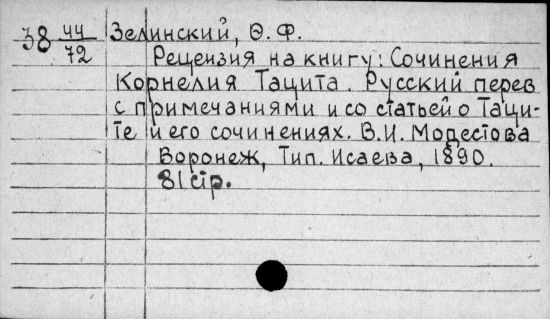 38 44/72 Зелинский, Ѳ. Ф.
Рецензия на книгу: Сочинения
Корнелия Тацита. Русский перев
с примечаниями и со статьей о Таци-
те и его сочинениях. В.И. Модестова
Воронеж, Тип. Исаева, 1890.
81 стр.